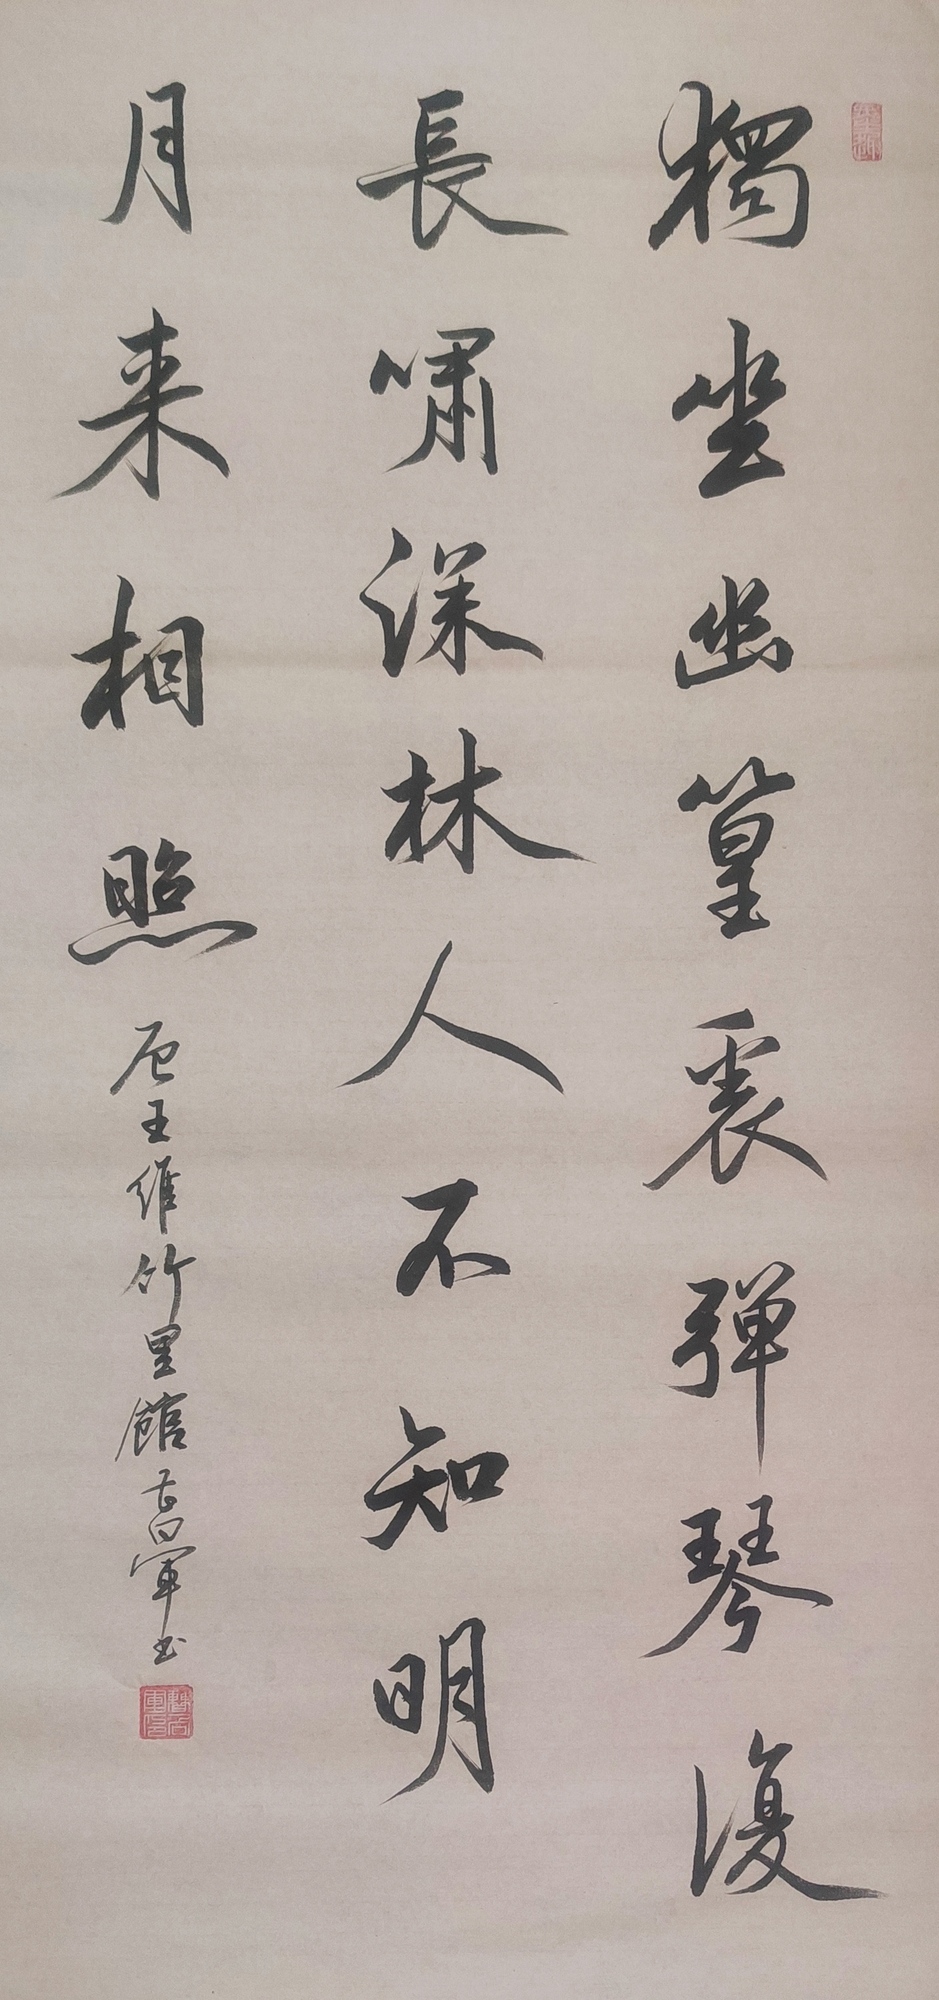 獨坐幽篁裏彈琴復
長嘯深林人不知明
月来相照
唐王維竹里館